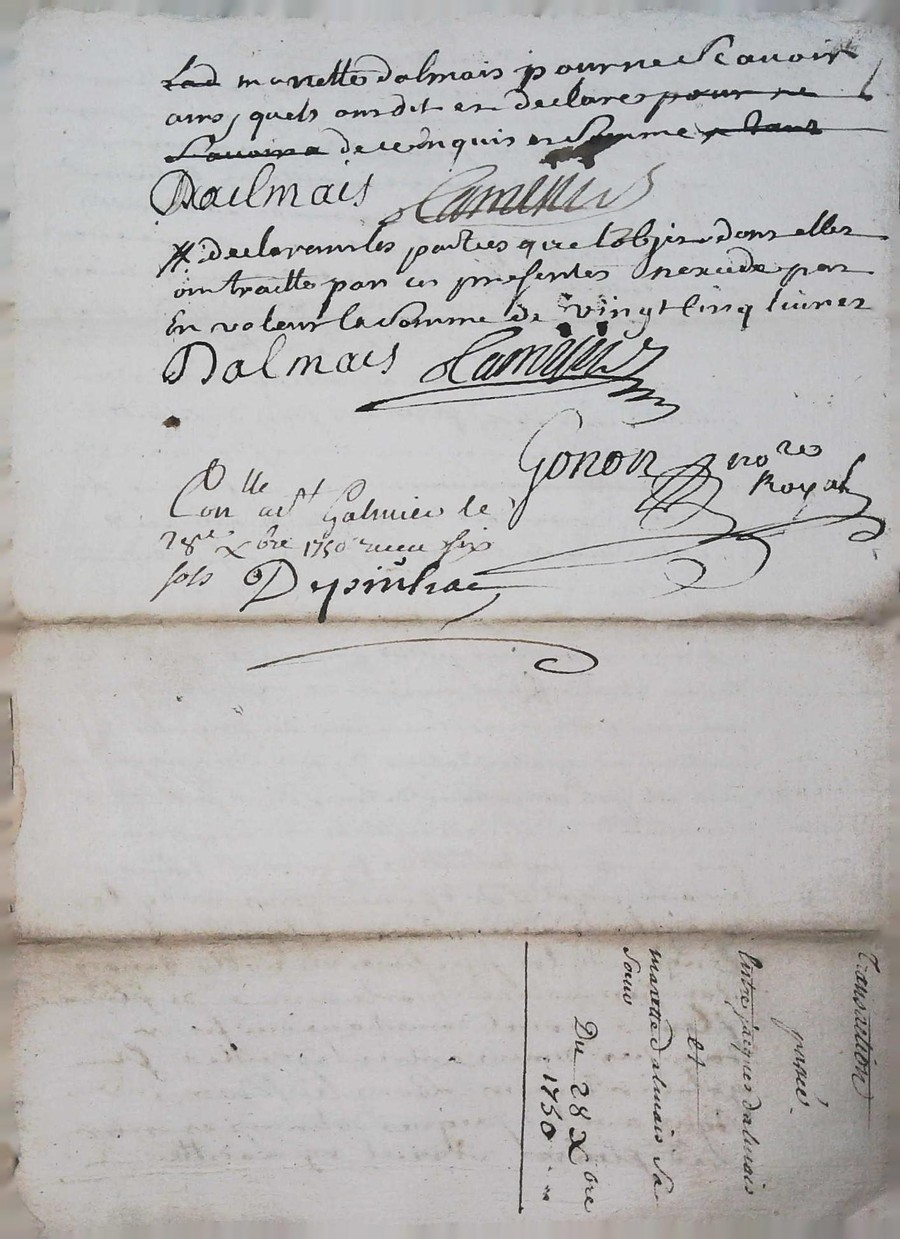 Lad mariette dalmais pour ne Scauoir
ainsy quels ont dit et declares pour ne
Scauoir de ce enquis et Somme
Dailmais Camiruis
# declarant les parties que lobjet dont elles
ont traitte par ces presentes nexcede pas
En valeur la Somme de vingt Cinq liures
Dalmais
Gonon nore
Royal
Conlle a St Galmier le
28e Xbre 1750 receu six
sols Depinhac
transaction
passé
Entre jacques dalmais
et
mariette dalmais Sa
Soeur
Du 28 Xbre
1750